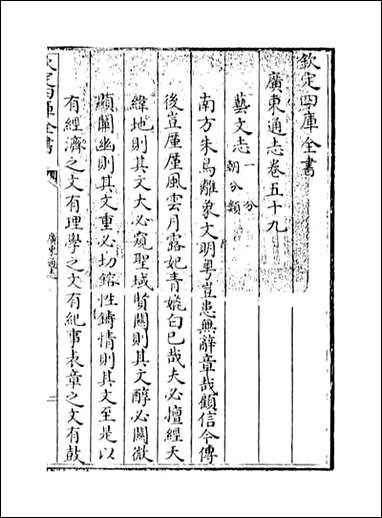 欽定四庫全書
廣東通志卷五十九
藝文志一 分朝分類
南方朱鳥離象文明粤豈患無辭章哉顧信今傳
後豈厪厪風雲月露妃青媲白已哉夫必壇經天
緯地則其文大必窺聖域賢關則其文醇必闡微
顯闡幽則其文重必切鎔性鑄情則其文至是以
有經濟之文有理學之文有紀事表章之文有鼓
欽定四庫全書
廣東通志